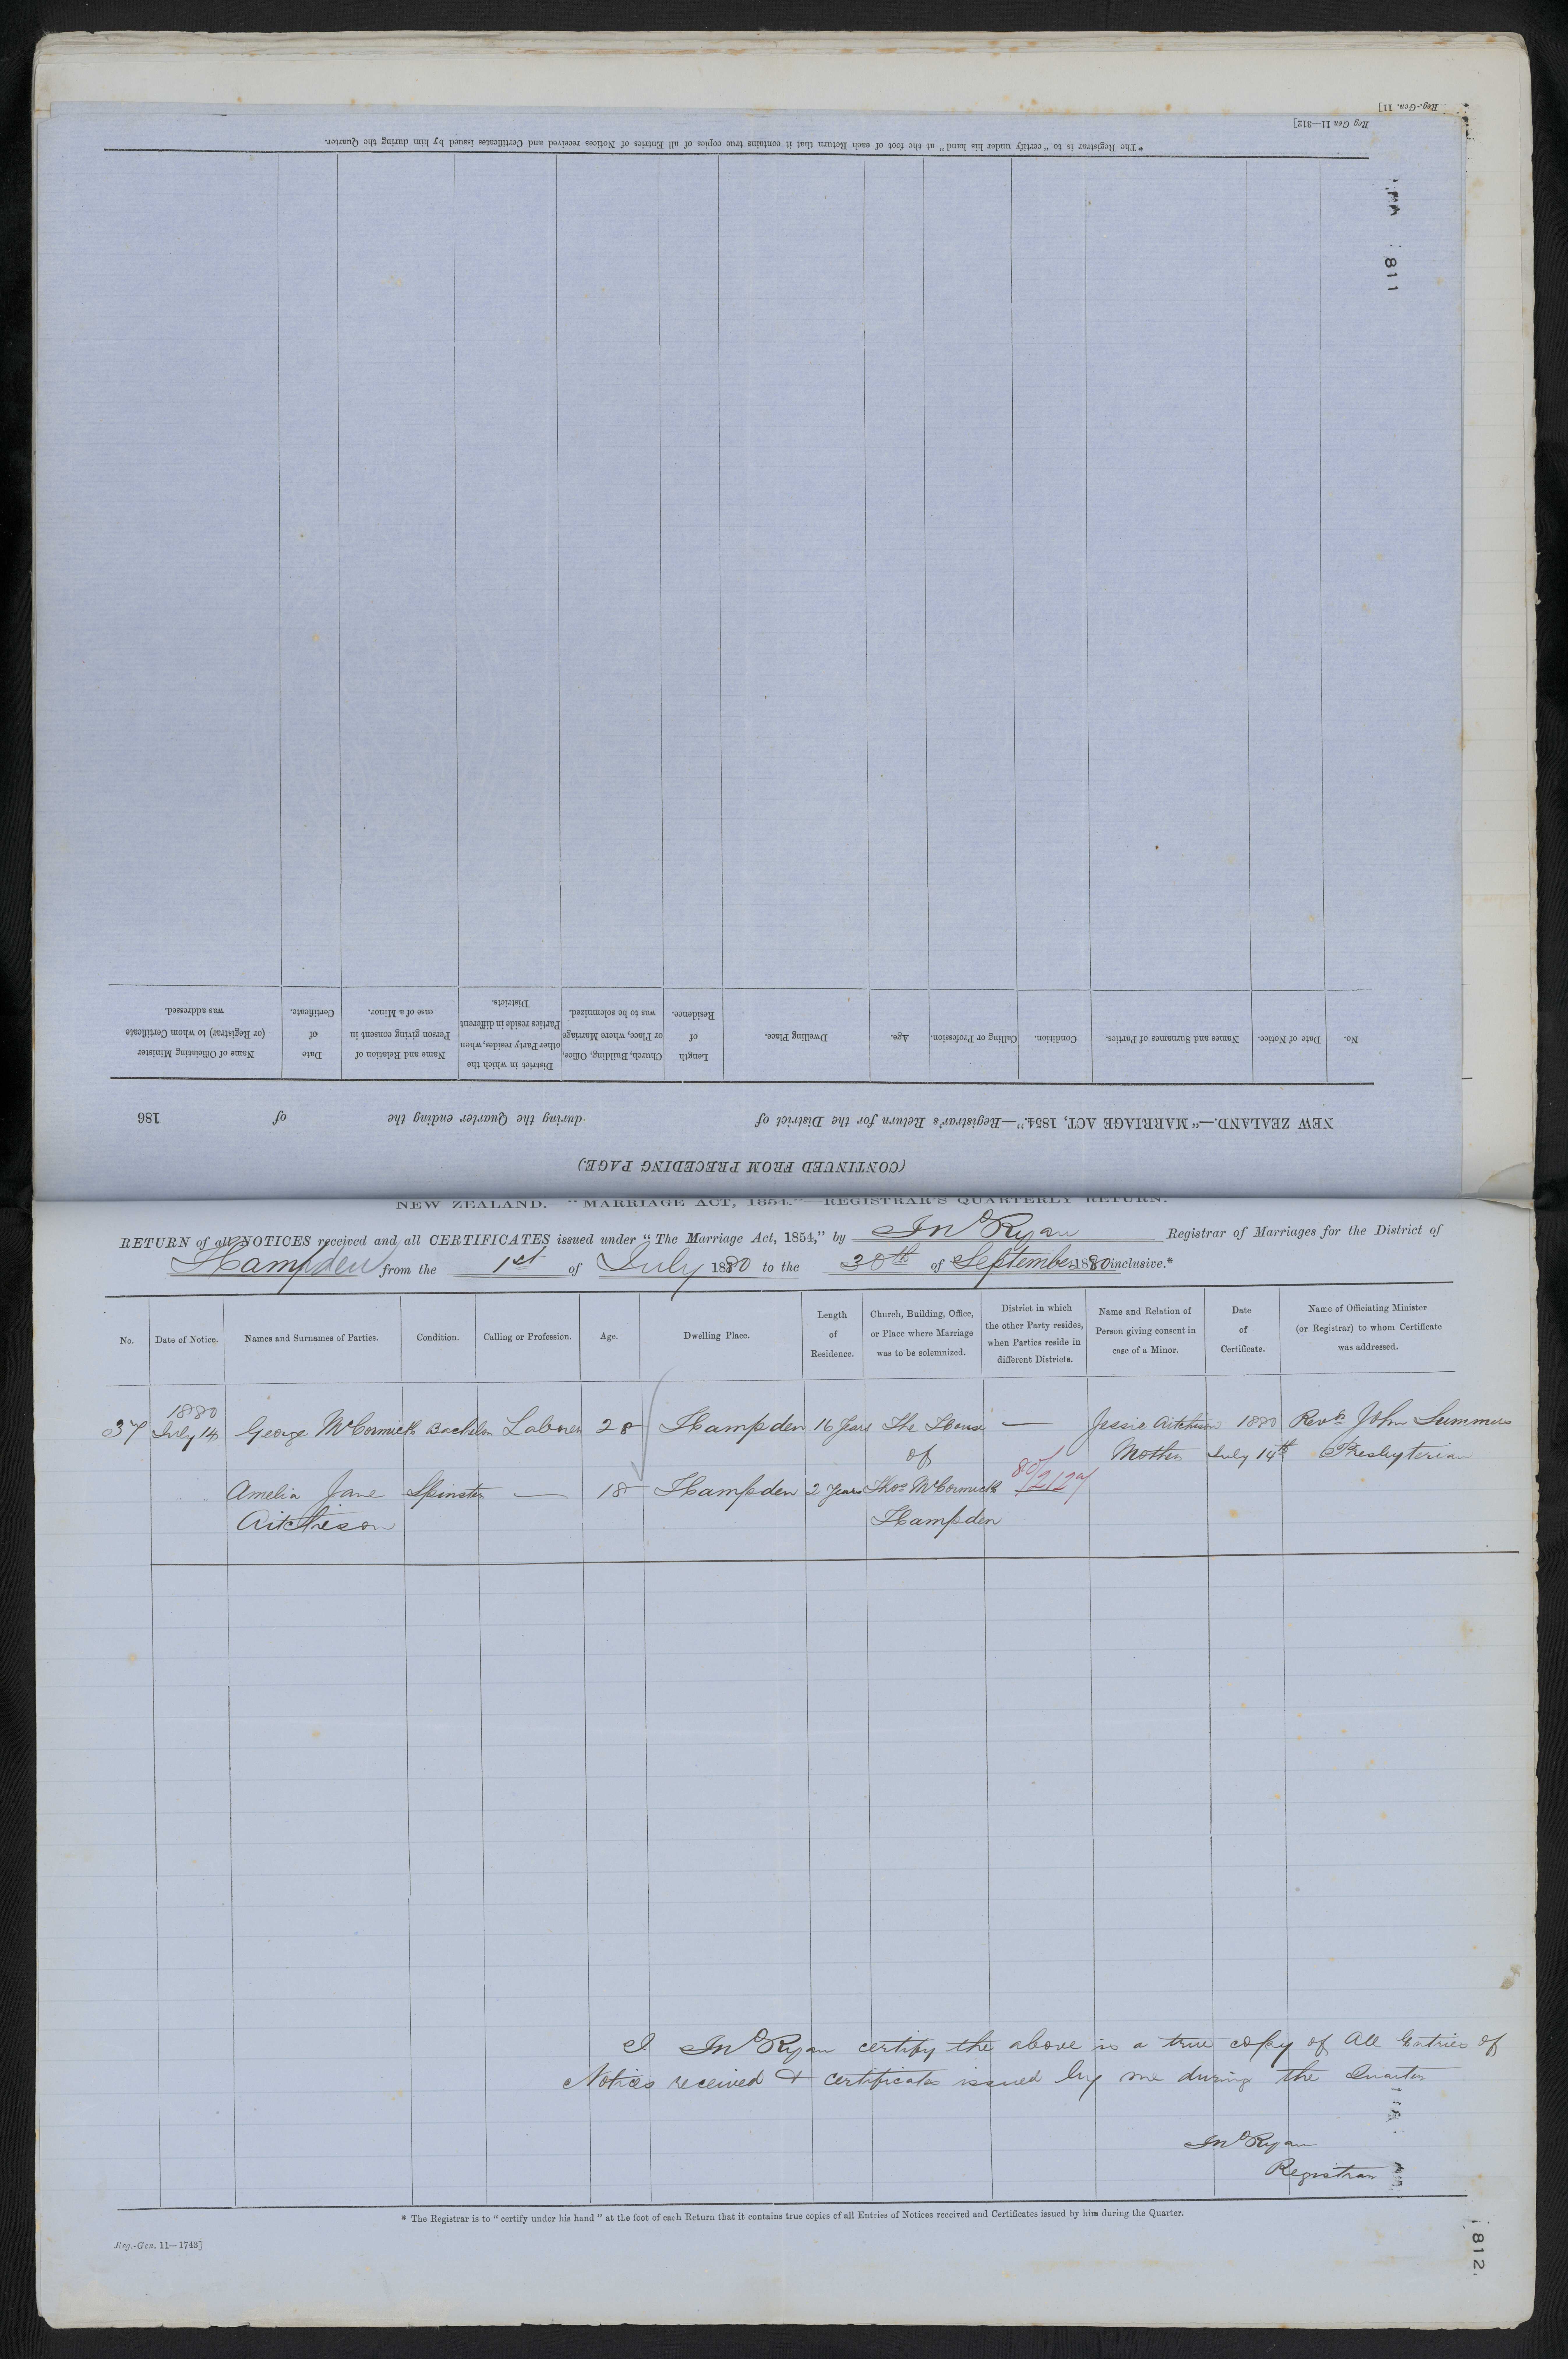 Reg.-Gen. 11]
Reg Gen 11—312]
* The Registrar is to "certify under his hand" at the foot of each Return that it contains true copies of all Entries of Notices received and Certificates issued by him during the Quarter.
811
No.
Date of Notice.
Names and Surnames of Parties.
Condition.
Calling or Profession.
Age.
Dwelling Place.
Length
of
Residence.
Church, Building, Office,
or Place, where Marriage
was to be solemnized.
District in which the
other Party resides, when
Parties reside in different
Districts.
Name and Relation of
Person giving consent in
case of a Minor.
Date
of
Certificate.
Name of Officiating Minister
(or Registrar) to whom Certificate
was addressed.
NEW ZEALAND.—"MARRIAGE ACT, 1854."—Registrar's Return for the District of during the Quarter ending the of 186
(CONTINUED FROM PRECEDING PAGE.)
NEW ZEALAND.—"MARRIAGE ACT, 1854."—REGISTRAR'S QUARTERLY RETURN.
RETURN of all NOTICES received and all CERTIFICATES issued under "The Marriage Act, 1854," by Jno Ryan Registrar of Marriages for the District of
Hampden from the 1st of July 1880 to the 30th of September 1880 inclusive.*
No.
Date of Notice.
Names and Surnames of Parties.
Condition.
Calling or Profession.
Age.
Dwelling Place.
Length
of
Residence.
Church, Building, Office,
or Place where Marriage
was to be solemnized.
District in which
the other Party resides,
when Parties reside in
different Districts.
Name and Relation of
Person giving consent in
case of a Minor.
Date
of
Certificate.
Name of Officiating Minister
(or Registrar) to whom Certificate
was addressed.
1880
37 July 14 George McCormick Bachelor Laborer 28 Hampden 16 Years The House — Jessie Aitchison 1880 Revd John Summers
of Mother July 14th Presbyterian
80/2127
Amelia Jane Spinster — 18 Hampden 2 Years Thos McCormick
Aitchison Hampden
I Jno Ryan certify the above is a true copy of All Entries of
Notices received & certificates issued by me during the Quarter
Jno Ryan
Registrar
* The Registrar is to "certify under his hand" at the foot of each Return that it contains true copies of all Entries of Notices received and Certificates issued by him during the Quarter.
Reg.-Gen. 11—1743]
812